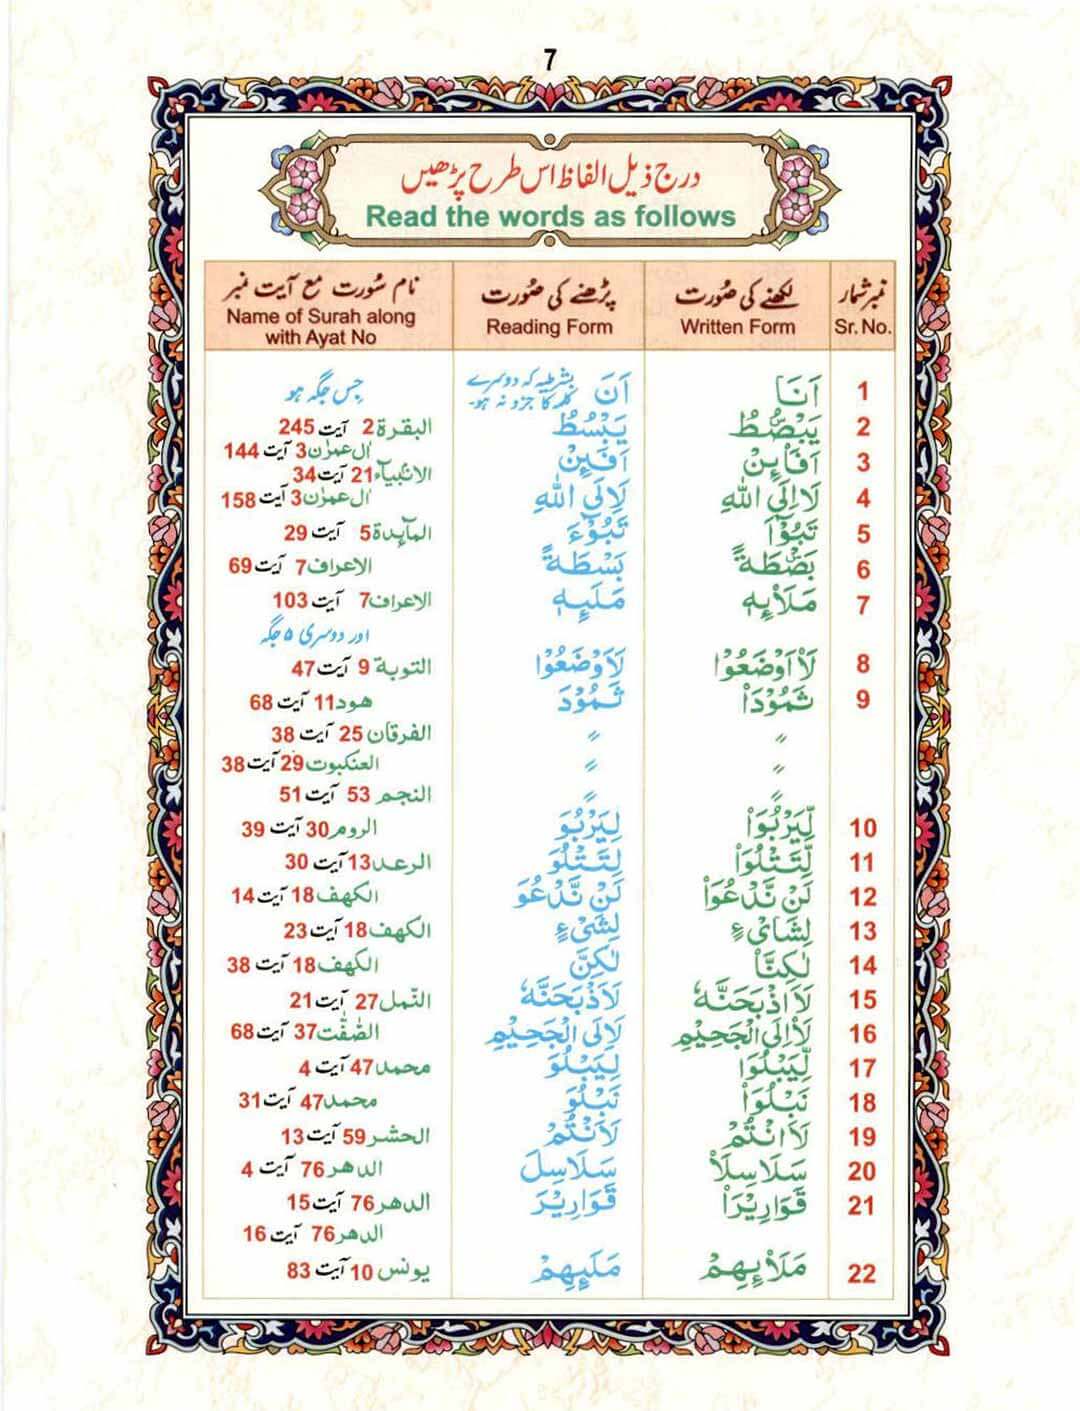 7
درج ذیل الفاظ اس طرح پڑھیں
Read the words as follows
نمبر شمار لکھنے کی صُورت پڑھنے کی صُورت نام سُورت مع آیت نمبر
Sr. No. Written Form Reading Form Name of Surah along
with Ayat No
1 اَنَا اَنَ بشرطیہ کہ دوسرے کلمہ کا جزو نہ ہو۔ جس جگہ ہو
2 يَبْصُۜطُ يَبْسُطُ البقرة 2 آیت 245
3 اَفَا۟ئِنْ اَفَئِنْ اٰل عمرٰن 3 آیت 144
الانبیآء 21 آیت 34
4 لَا۟اِلَى اللّٰهِ لَاِلَى اللّٰهِ اٰل عمرٰن 3 آیت 158
5 تَبُوْٓاَ۟ تَبُوْٓءَ المآئدة 5 آیت 29
6 بَصْۜطَةً بَسْطَةً الاعراف 7 آیت 69
7 مَلَا۟ئِهٖ مَلَئِهٖ الاعراف 7 آیت 103
اور دوسری ۵ جگہ
8 لَا۟اَوْضَعُوْا لَاَوْضَعُوْا التوبة 9 آیت 47
9 ثَمُوْدَا۟ ثَمُوْدَ هود 11 آیت 68
〃 〃 الفرقان 25 آیت 38
〃 〃 العنکبوت 29 آیت 38
〃 〃 النجم 53 آیت 51
10 لِّيَرْبُوَا۟ لِيَرْبُوَ الروم 30 آیت 39
11 لِّتَتْلُوَا۟ لِتَتْلُوَ الرعد 13 آیت 30
12 لَنْ نَّدْعُوَا۟ لَنْ نَّدْعُوَ الکهف 18 آیت 14
13 لِشَا۟یْءٍ لِشَیْءٍ الکهف 18 آیت 23
14 لٰكِنَّا۟ لٰكِنَّ الکهف 18 آیت 38
15 لَا۟اَذْبَحَنَّهٗ لَاَذْبَحَنَّهٗ النّمل 27 آیت 21
16 لَا۟اِلَى الْجَحِيْمِ لَاِلَى الْجَحِيْمِ الصّٰفّٰت 37 آیت 68
17 لِّيَبْلُوَا۟ لِيَبْلُوَ محمد 47 آیت 4
18 نَبْلُوَا۟ نَبْلُوَ محمد 47 آیت 31
19 لَا۟اَنْتُمْ لَاَنْتُمْ الحشر 59 آیت 13
20 سَلَاسِلَا۟ سَلَاسِلَ الدهر 76 آیت 4
21 قَوَارِيْرَا۟ قَوَارِيْرَ الدهر 76 آیت 15
الدهر 76 آیت 16
22 مَلَا۟ئِهِمْ مَلَئِهِمْ یونس 10 آیت 83